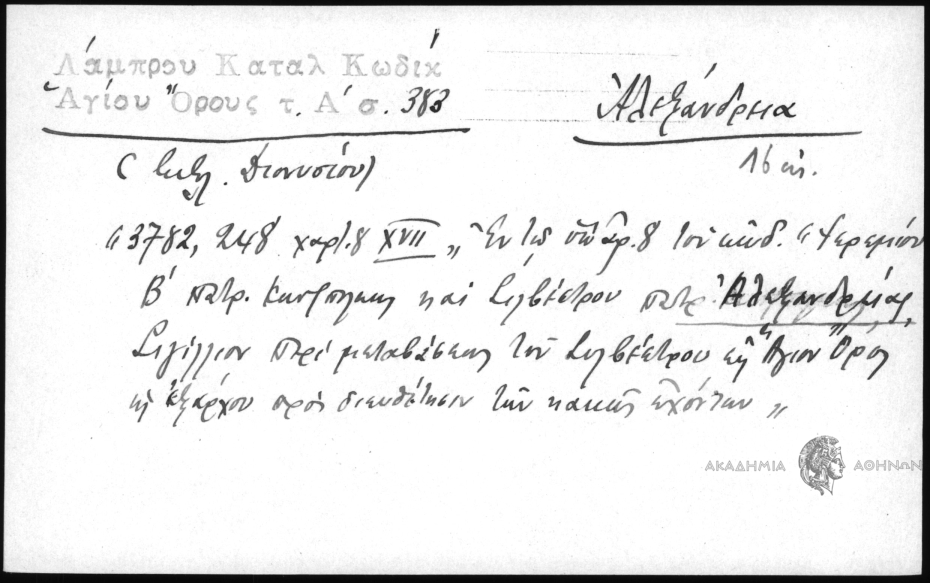 Λάμπρου Καταλ Κωδίκ
Ἁγίου Ὄρους τ. Α' σ. 383
Ἀλεξάνδρεια
16 αἰ.
( Διονυσίου)
"3782, 248 χαρτ. 8 XVII „ Ἐν τῷ ὑπ' ἀρ. 8 τοῦ κώδ. "Ἱερεμίου
Β' πατρ. Κωνσ/πόλεως καὶ Σιλβέστρου πατρ. Ἀλεξανδρείας,
Σιγίλλιον περὶ μεταβάσεως τοῦ Σιλβέστρου εἰς Ἅγιον Ὄρος
ὡς ἐξάρχου πρὸς διευθέτησιν τῶν κακῶς ἐχόντων „
ΑΚΑΔΗΜΙΑ ΑΘΗΝΩΝ